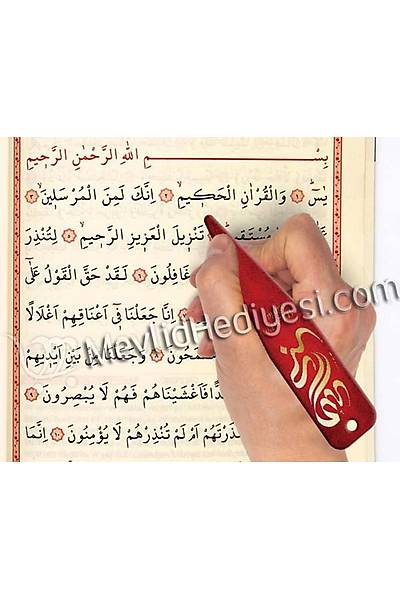 بِسْمِ اللهِ الرَّحْمٰنِ الرَّحٖيمِ
يٰسٓ ۚ ﴿١﴾ وَالْقُرْاٰنِ الْحَكٖيمِ ۙ ﴿٢﴾ اِنَّكَ لَمِنَ الْمُرْسَلٖينَ ۙ ﴿٣﴾
مُسْتَقٖيمٍ تَنْزٖيلَ الْعَزٖيزِ الرَّحٖيمِ ۙ ﴿٥﴾ لِتُنْذِرَ
غَافِلُونَ ﴿٦﴾ لَقَدْ حَقَّ الْقَوْلُ عَلٰٓى
اِنَّا جَعَلْنَا فٖٓى اَعْنَاقِهِمْ اَغْلَالًا
مُقْمَحُونَ ﴿٨﴾ وَجَعَلْنَا مِنْ بَيْنِ اَيْدٖيهِمْ
سَدًّا فَاَغْشَيْنَاهُمْ فَهُمْ لَا يُبْصِرُونَ ﴿٩﴾
ءَاَنْذَرْتَهُمْ اَمْ لَمْ تُنْذِرْهُمْ لَا يُؤْمِنُونَ ﴿١٠﴾ اِنَّمَا
MevlidHediyesi.com